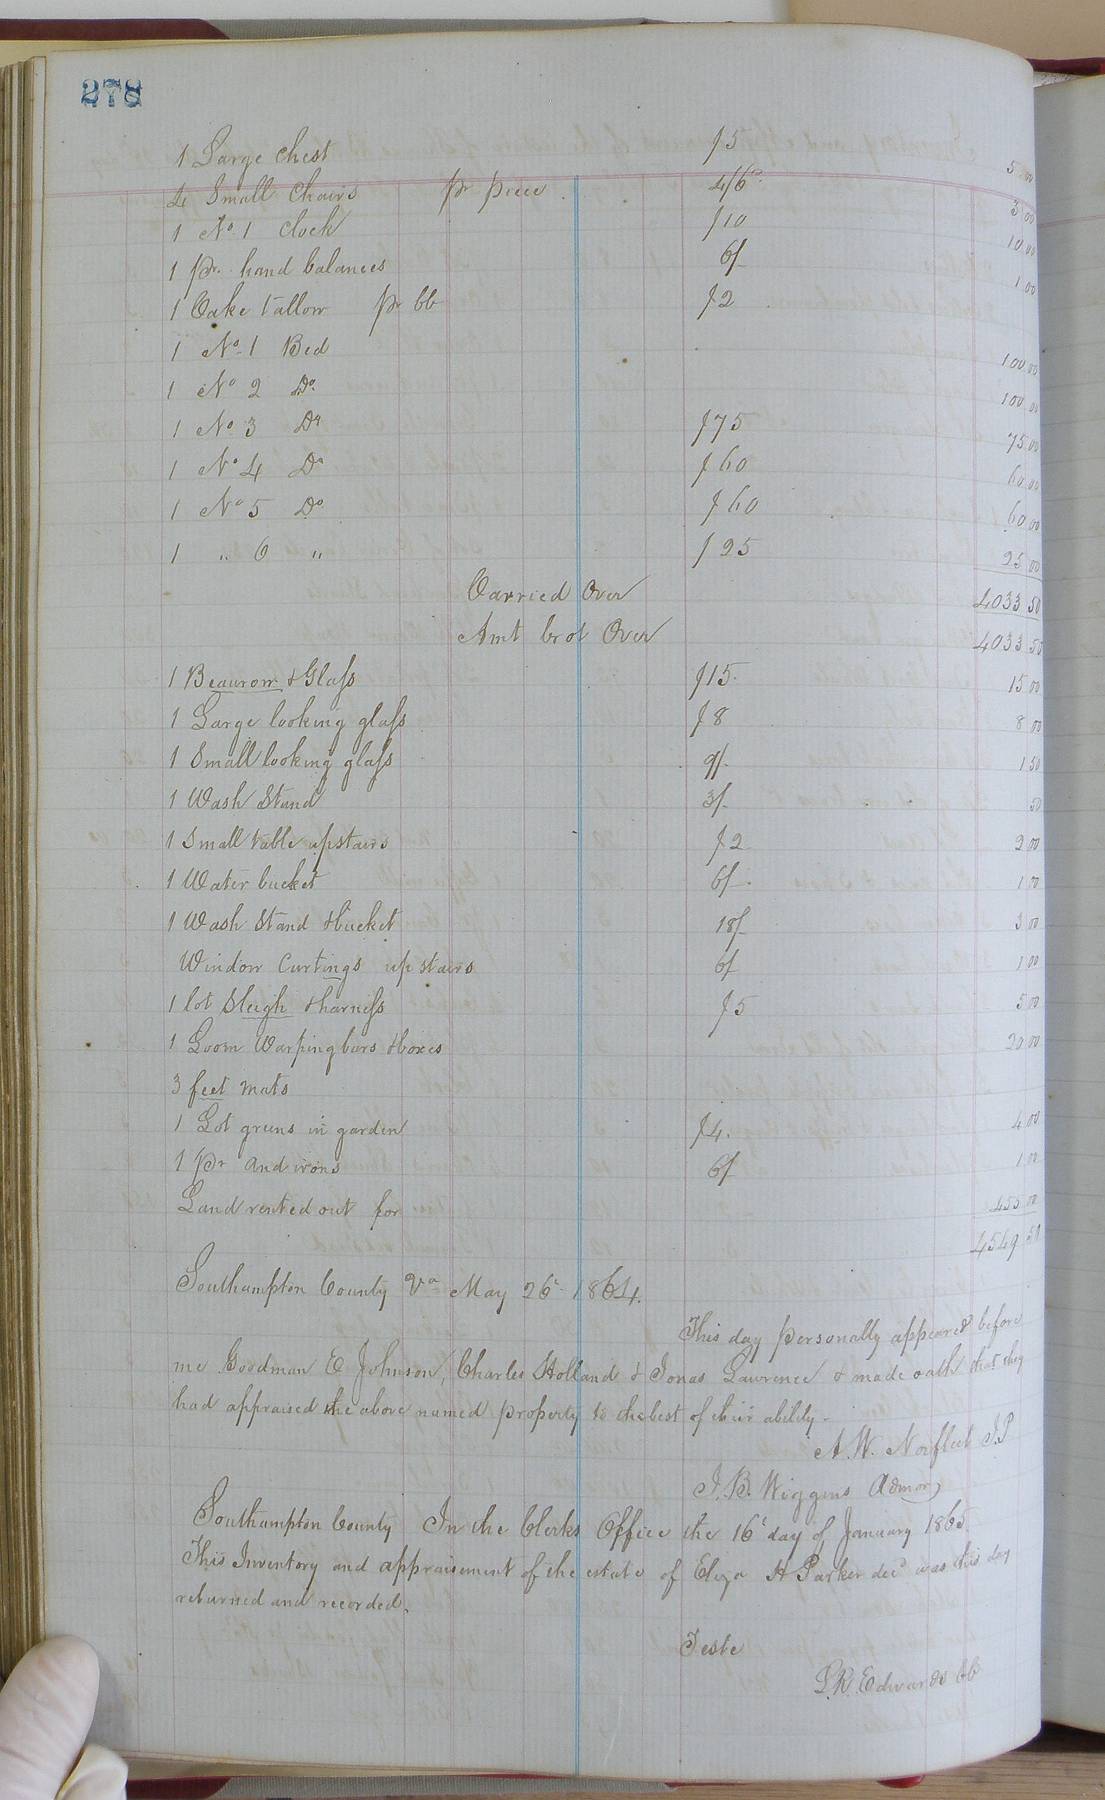 278
1 Large Chest $5 5 00
4 Small Chairs pr piece 4/6d 3 00
1 No. 1 Clock $10 10 00
1 pr. hand balances 6/ 1 00
1 Cake Tallow pr lb $2
1 No. 1 Bed 100 00
1 No 2 Do. 100 00
1 No 3 Do $75 75 00
1 No 4 Do $60 60 00
1 No 5 Do $60 60 00
1 " 6 " $25 25 00
Carried Over 4033 50
Amt brot Over 4033 50
1 Beaurow & Glass $15. 15 00
1 Large looking glass $8 8 00
1 Small looking glass 9/. 1 50
1 Wash Stand 3/. 50
1 Small table upstairs $2 2 00
1 Water bucket 6/. 1 00
1 Wash Stand & bucket 18/ 3 00
Window Curtings up stairs 6/ 1 00
1 lot Sleigh & harness $5 5 00
1 Loom Warping bars & boxes 20 00
3 feet mats
1 Lot greens in garden $4. 4 00
1 pr and irons 6/ 1 00
Land rented out for 455 00
4549 50
Southampton County Va May 26t 1864.
This day personally appeared before
me Goodman E Johnson, Charles Holland & Jonas Lawrence & made oath that they
had appraised the above named property to the best of their ability.
A. W. Norfleet J.P
J. B. Wiggins Admor
Southampton County In the Clerks Office the 16t day of January 1865.
This Inventory and appraisement of the estate of Eliza H Parker decd was this day
returned and recorded.
Teste
L. R. Edwards CC